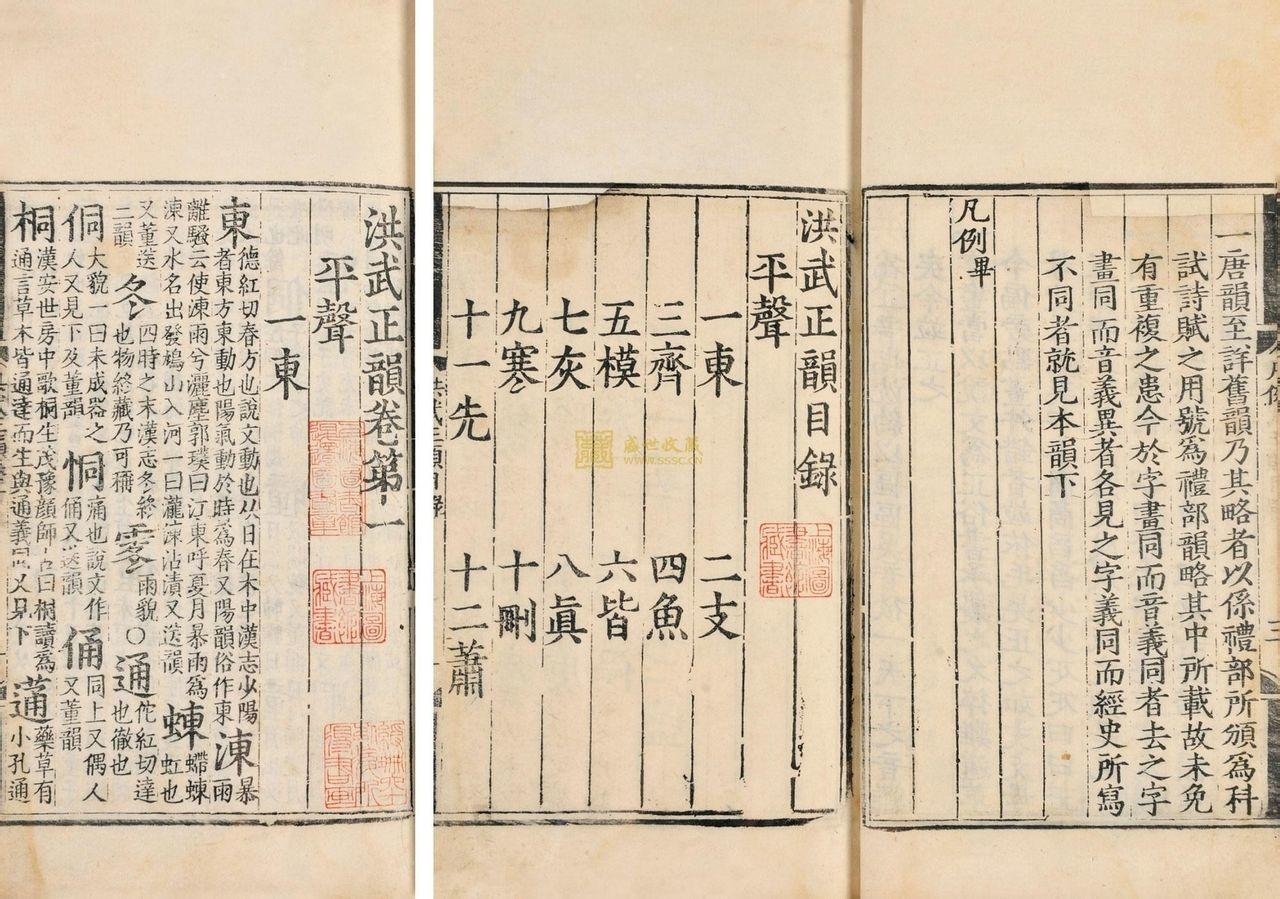 一唐韻至詳舊韻乃其略者以係禮部所頒爲科
試詩賦之用號爲禮部韻略其中所載故未免
有重複之患今於字畫同而音義同者去之字
畫同而音義異者各見之字義同而經史所寫
不同者就見本韻下
凡例畢
洪武正韻目錄
平聲
一東 二支
三齊 四魚
五模 六皆
七灰 八眞
九寒 十刪
十一先 十二蕭
洪武正韻目錄
盛世收藏
WWW.SSSC.CN
洪武正韻卷第一
平聲
一東
東德紅切春方也說文動也从日在木中漢志少陽者東方東動也陽氣動於時爲春又陽韻俗作東涷暴雨
離騷云使涷雨兮灑塵郭璞曰江東呼夏月暴雨爲涷又水名出發鳩山入河一曰瀧涷沾漬又送韻蝀螮蝀虹也
又董送三韻冬四時之末漢志冬終也物終藏乃可稱雨貌○通佗紅切達也徹也
侗大貌一曰未成器之人又見下及董韻恫痛也說文作侗又送韻俑同上又偶人又董韻
桐漢安世房中歌桐生茂豫顏師古曰桐讀爲通言草木皆通達而生與通義同又見下蓪藥草有小孔通